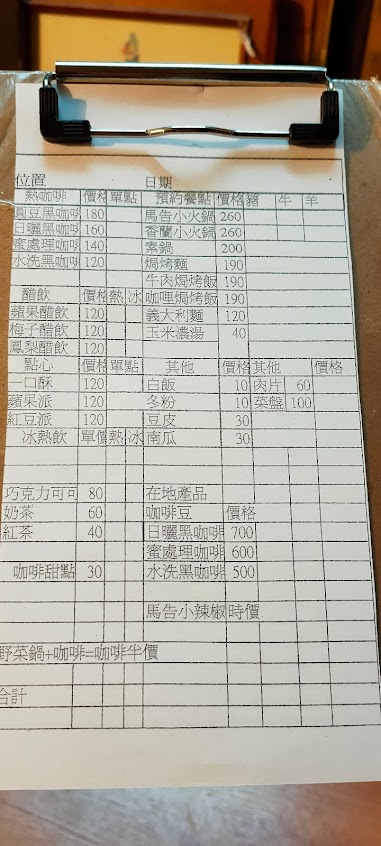 位置 日期
熱咖啡 價格 單點 預約餐點 價格 豬 牛 羊
圓豆黑咖啡 180 馬告小火鍋 260
日曬黑咖啡 160 香蘭小火鍋 260
蜜處理咖啡 140 素鍋 200
水洗黑咖啡 120 焗烤麵 190
牛肉焗烤飯 190
醋飲 價格 熱 冰 咖哩焗烤飯 190
蘋果醋飲 120 義大利麵 120
梅子醋飲 120 玉米濃湯 40
鳳梨醋飲 120
點心 價格 單點 其他 價格 其他 價格
一口酥 120 白飯 10 肉片 60
蘋果派 120 冬粉 10 菜盤 100
紅豆派 120 豆皮 30
冰熱飲 單價 熱 冰 南瓜 30
巧克力可可 80 在地產品
奶茶 60 咖啡豆 價格
紅茶 40 日曬黑咖啡 700
蜜處理咖啡 600
咖啡甜點 30 水洗黑咖啡 500
馬告小辣椒 時價
野菜鍋+咖啡=咖啡半價
合計